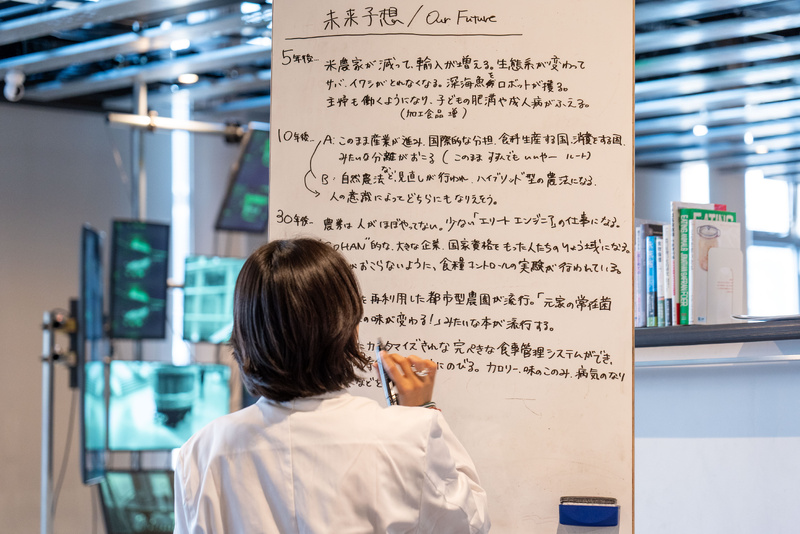 未来予想 / Our Future
5年後… 米農家が減って、輸入が増える。生態系が変わって
サバ、イワシがとれなくなる。深海魚をロボットが獲る。
主婦も働くようになり、子どもの肥満や成人病がふえる。
(加工食品 増)
10年後… A: このまま産業が進み、国際的な分担、食料生産する国、消費する国、
みたいな分離がおこる ( このまますすんでもいいやー ルート)
B: 自然農法など見直しが行われ、ハイブリッド型の農法になる.
人の意識によってどちらにもなりえそう。
30年後… 農業は人がほぼやってない。少ない「エリートエンジニア」の仕事になる。
HAN"的な、大きな企業、国家資格をもった人たちのりょう域になる.
がおこらないように、食糧コントロールの実験が行われている。
再利用した都市型農園が流行。「元家の常在菌
の味が変わる!」みたいな本が流行する。
にカスタマイズされた完ぺきな食事管理システムができ、
にのびる。カロリー、味のこのみ、病気のなり
などを
EATING